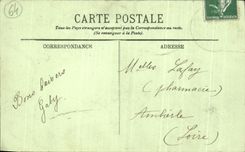 64
CARTE POSTALE
Tous les Pays étrangers n'acceptent pas la Correspondance au recto.
(Se renseigner à la Poste).
CORRESPONDANCE
ADRESSE
Bons baisers
Gaby
Melles Lafay
(pharmacie)
Ambierle
(Loire)